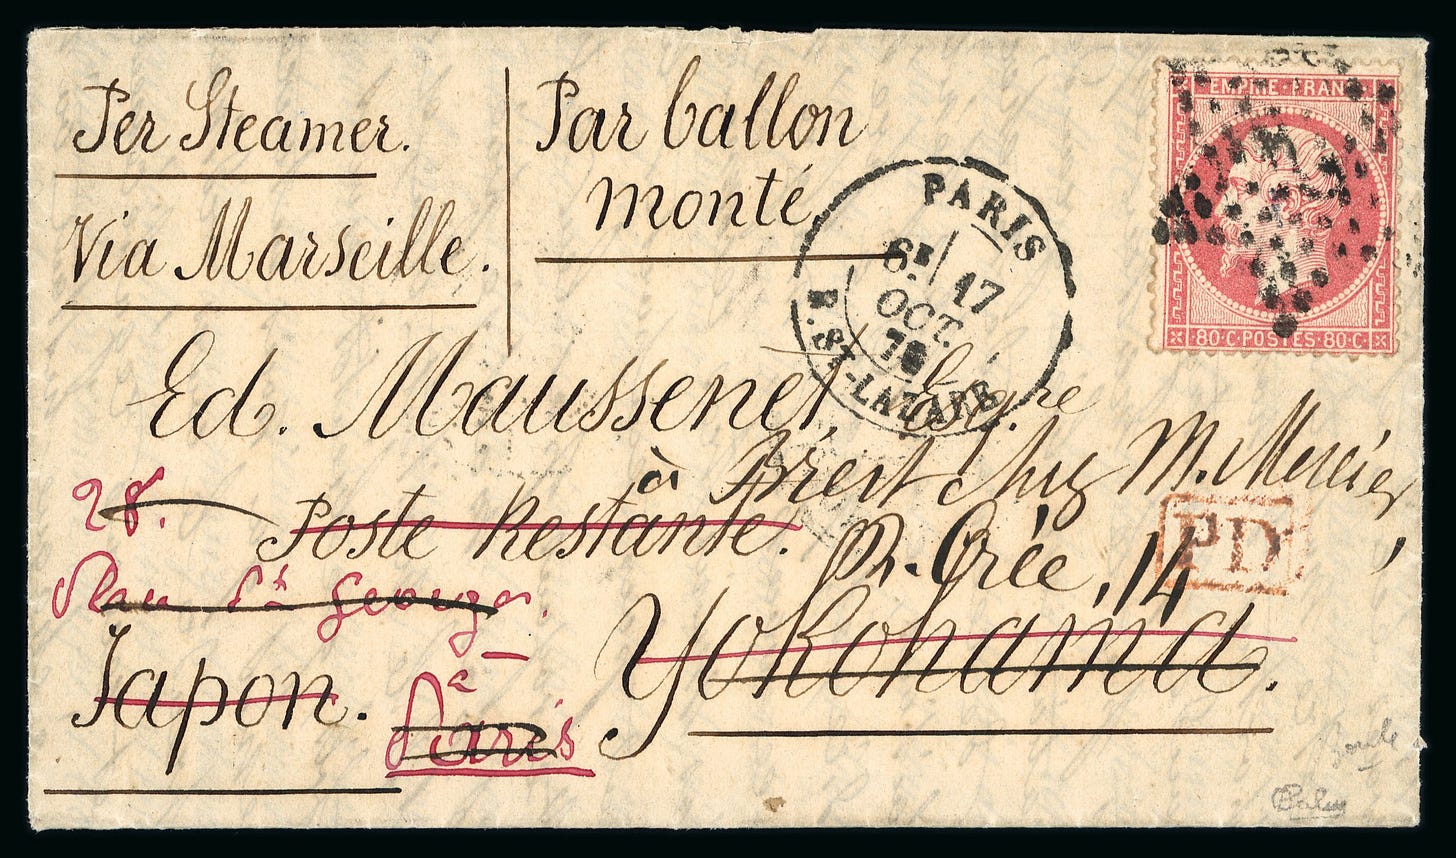 Per Steamer.
Via Marseille.
Par ballon
monté
PARIS
6E 17
OCT.
70
R. ST-LAZARE
EMPIRE FRANC
80·C·POSTES·80·C
Ed. Maussenet, Esqre
à Brest chez M. Mercier,
R. Orée, 14
PD
Poste Restante.
28.
Rue St Georges.
à
Paris
Yokohama.
Japon.